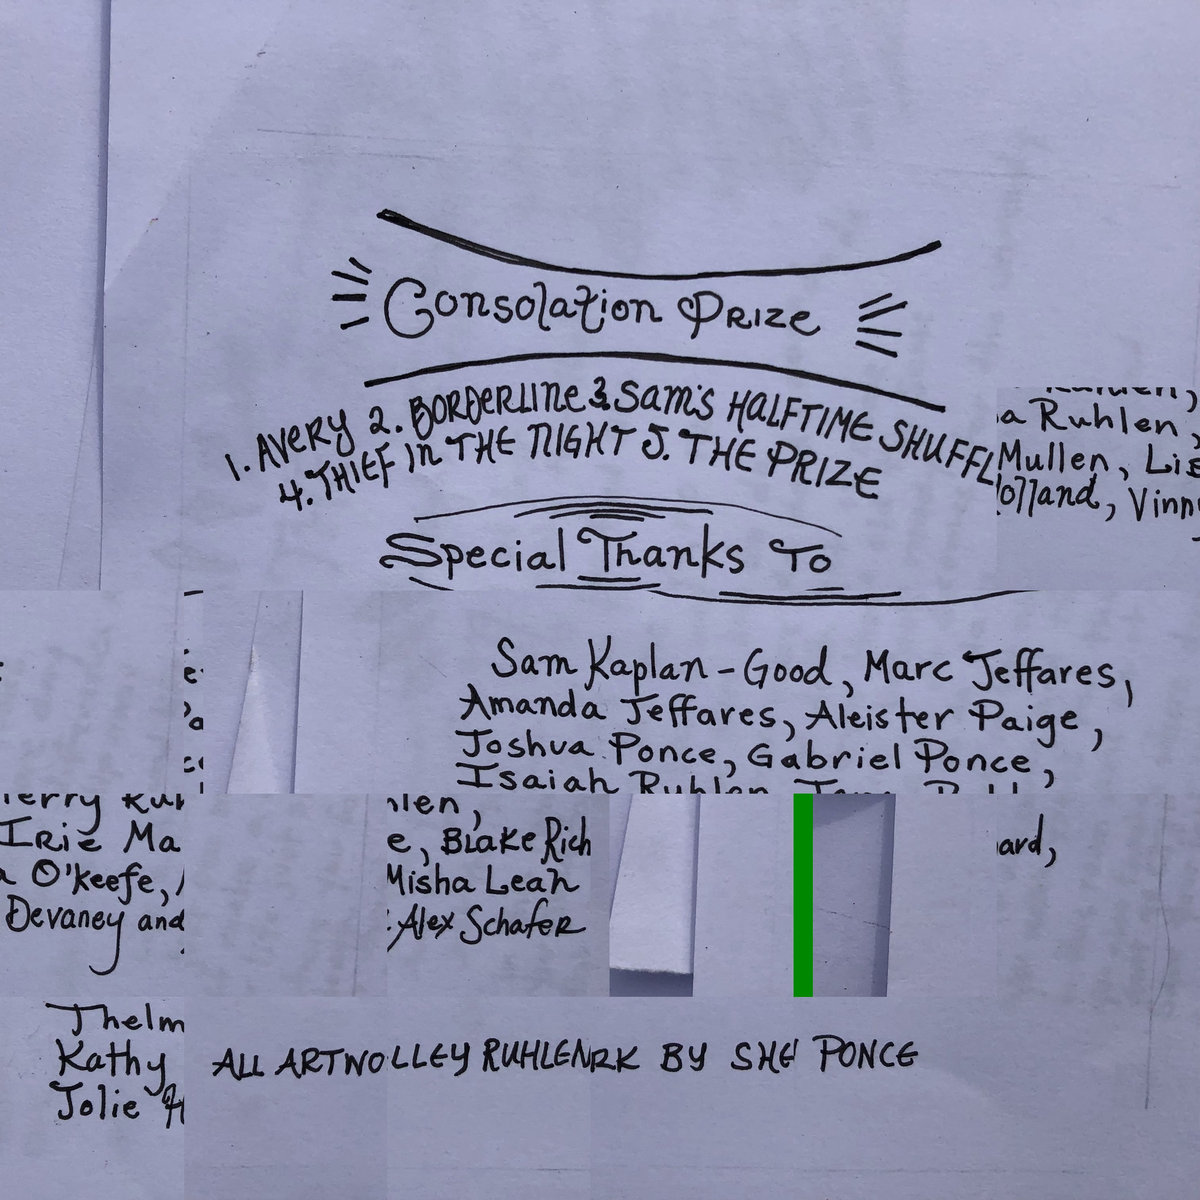 Consolation Prize
1. AVERY 2. BORDERLINE 3. SAM'S HALFTIME SHUFFL
4. THIEF IN THE NIGHT 5. THE PRIZE
a Ruhlen,
Mullen, Lis
olland, Vinn
Special Thanks To
Sam Kaplan-Good, Marc Jeffares,
Amanda Jeffares, Aleister Paige,
Joshua Ponce, Gabriel Ponce,
Isaiah Ruhlen,
hlen,
IRie Ma
e, Blake Rich
ard,
O'Keefe,
Misha Leah
Devaney and
Alex Schafer
Thelm
Kathy
Jolie
ALL ARTWO
LLEY RUHLEN
RK BY SHE
PONCE